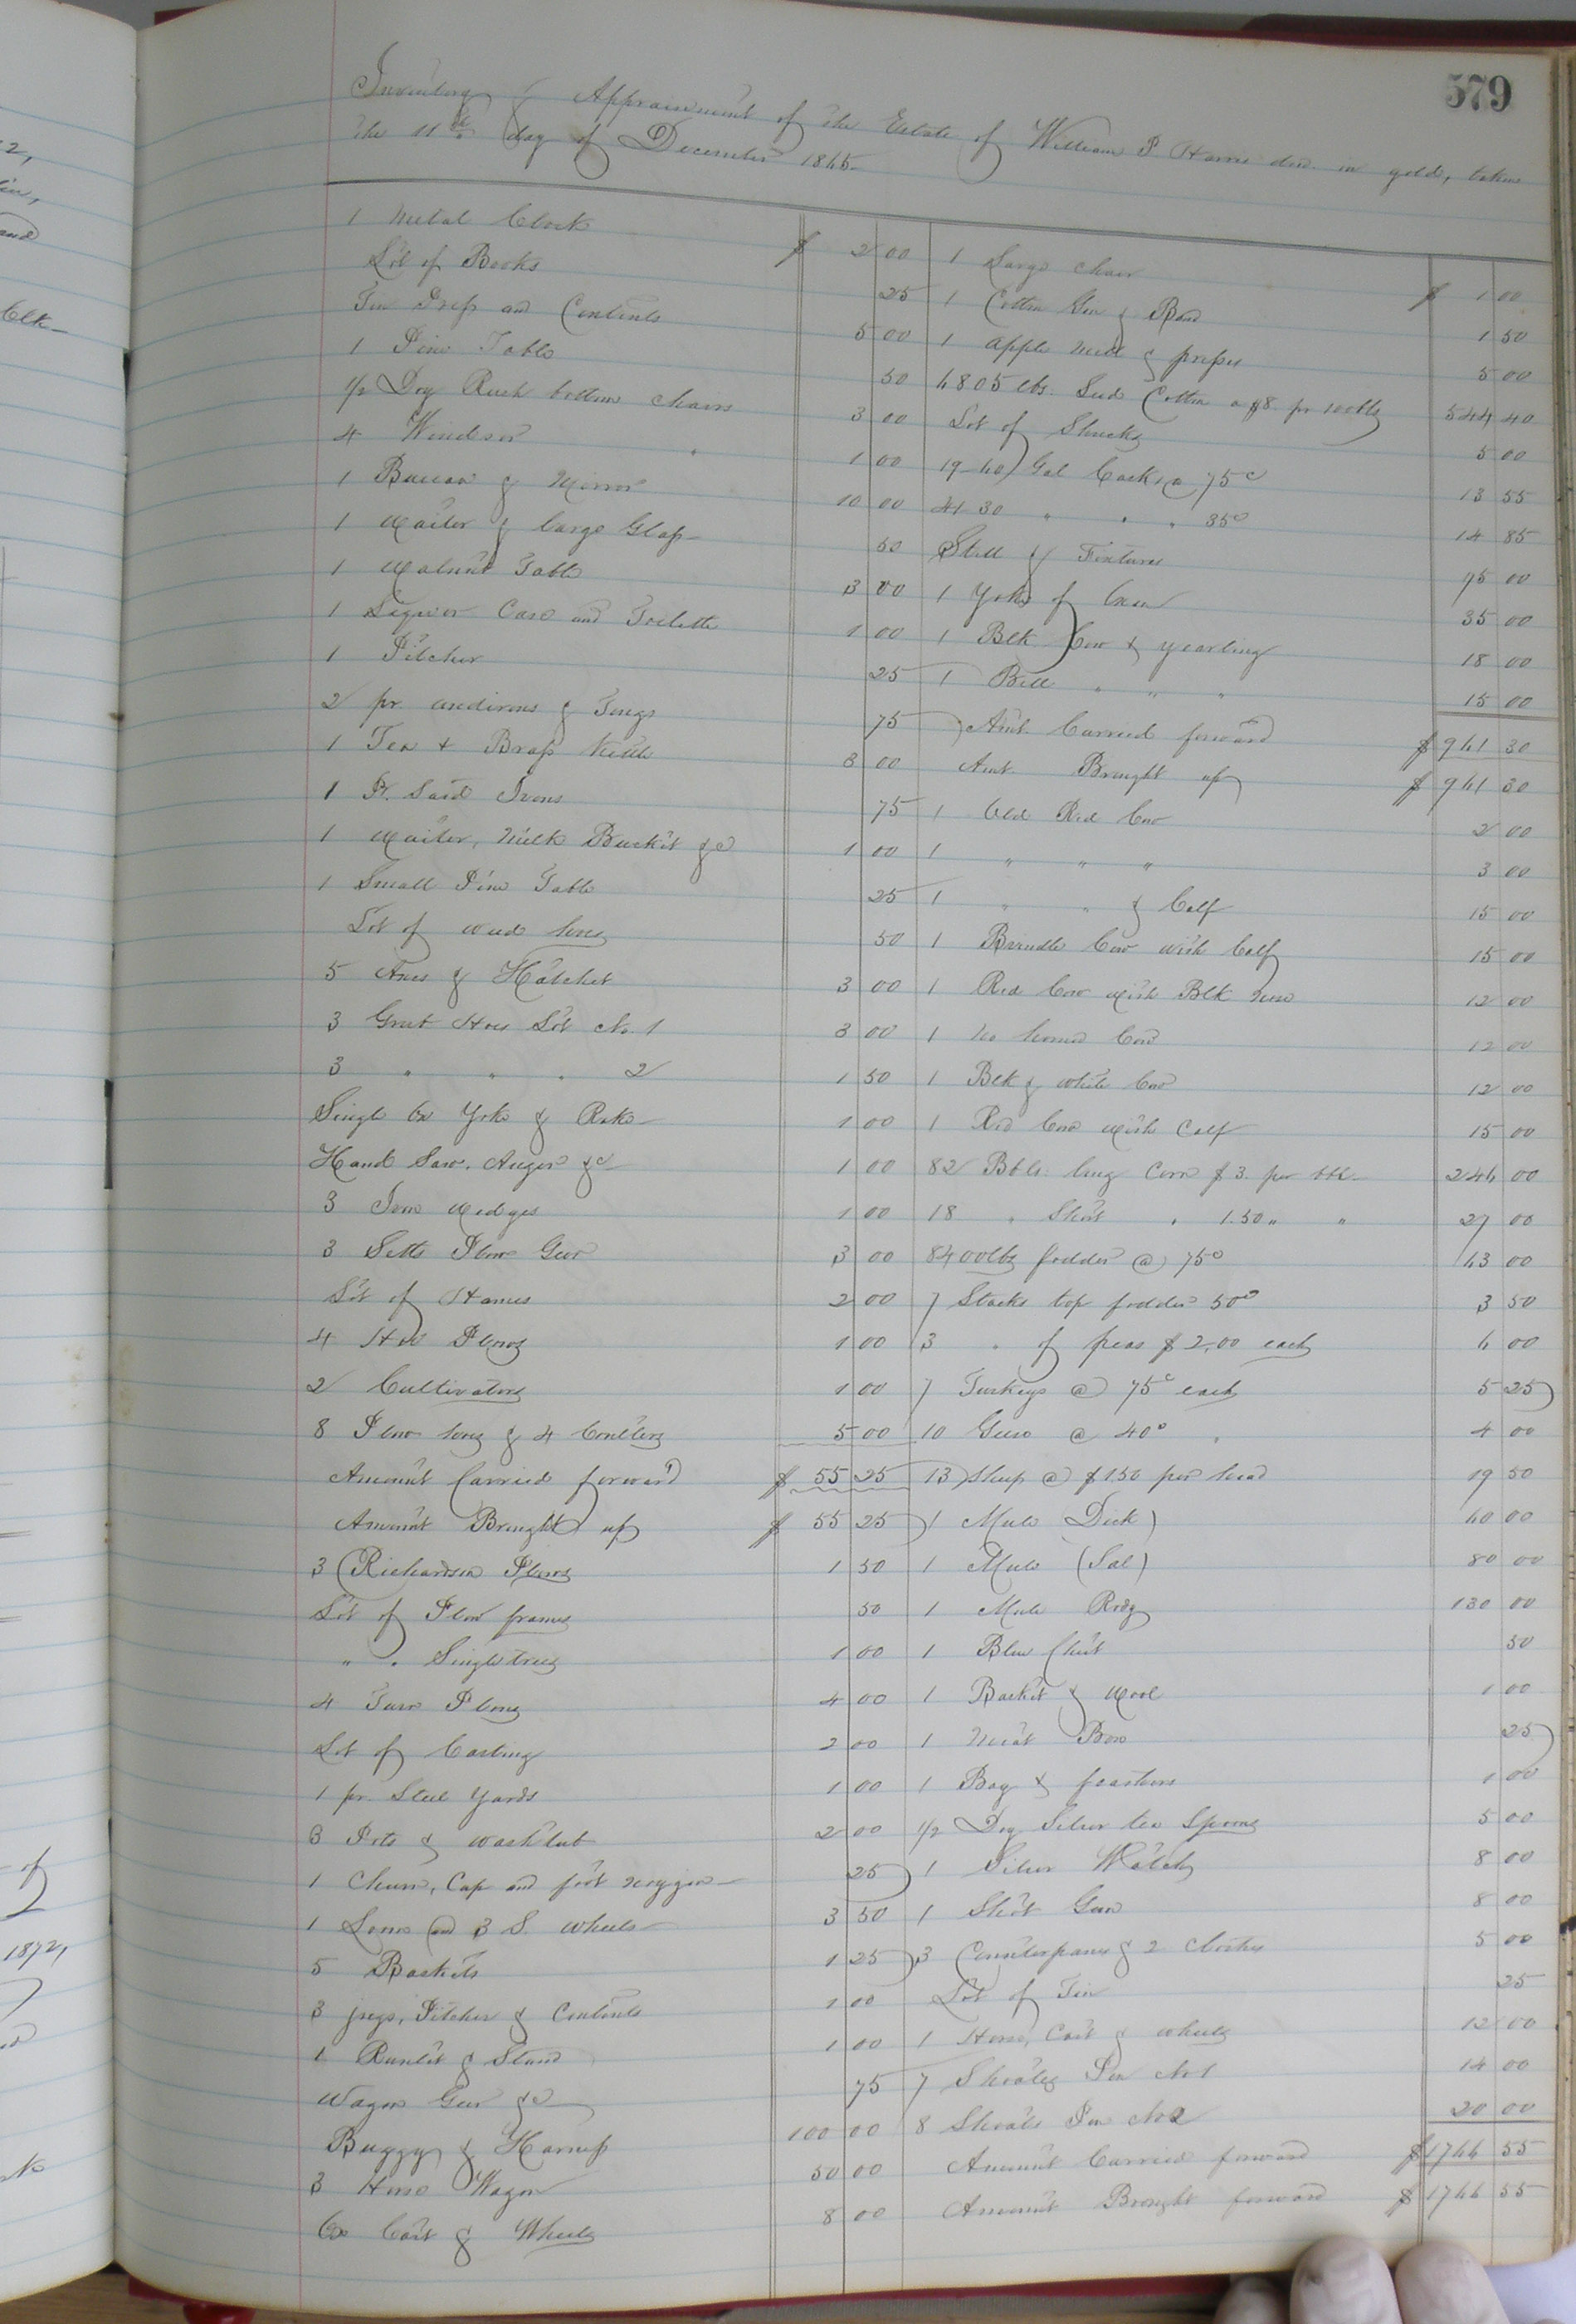 579
Inventory & Appraisement of the Estate of William P Harris decd. in gold, taken
the 11th day of December 1865.
1 Metal Clock $ 2 00
Lot of Books 25
Tin Press and Contents 5 00
1 Pine Table 50
1/2 Doz Rush bottom chairs 3 00
4 Windsor " 1 00
1 Bureau & Mirror 10 00
1 Waiter & large Glass 50
1 Walnut Table 3 00
1 Liquor Case and Toilette 1 00
1 Pitcher 25
2 pr andirons & Tongs 75
1 Tea & Brass kettle 3 00
1 Pr. Said Irons 75
1 Waiter, Milk Bucket &c 1 00
1 Small Pine Table 25
Lot of weed hoes 50
5 Axes & Hatchet 3 00
3 Grub Hoes Lot No. 1 3 00
3 " " " 2 1 50
Single Ox Yoke & Rake 1 00
Hand Saw, Auger &c 1 00
3 Iron wedges 1 00
3 Setts Plow Gear 3 00
Lot of Hames 2 00
4 Hoe Plows 1 00
2 Cultivators 1 00
8 Plow hoes & 4 Coulters 5 00
Amount Carried forward $ 55 25
Amount Brought up $ 55 25
3 Richardson Plows 1 50
Lot of Plow frames 50
" " Singletrees 1 00
4 Turn Plows 4 00
Lot of Castings 2 00
1 pr Steel Yards 1 00
3 Pots & wash tub 2 00
1 Churn, Cap and foot noggin 25
1 Loom and 3 S. wheels 3 50
5 Baskets 1 25
3 jugs, Pitcher & Contents 1 00
1 Runlet & Stand 1 00
Wagon Gear &c 75
Buggy & Harness 100 00
3 Horse Wagon 50 00
Ox Cart & Wheels 8 00
1 Large chair $ 1 00
1 Cotton Gin & Band 1 50
1 apple mill & presser 5 00
6805 lbs. Seed Cotton a $8. pr 100lbs 544 40
Lot of Shucks 5 00
19-60 Gal Casks @ 75c 13 55
41 30 " " " 35c 14 85
Still & Fixtures 75 00
1 Yoke of Oxen 35 00
1 Blk Cow & yearling 18 00
1 Bell " " " 15 00
Amt. Carried forward $ 961 30
Amt. Brought up $ 961 30
1 Old Red Cow 2 00
1 " " " 3 00
1 " " & Calf 15 00
1 Brindle Cow with Calf 15 00
1 Red Cow with Blk nose 12 00
1 no horned Cow 12 00
1 Blk & white Cow 12 00
1 Red Cow with Calf 15 00
82 Bbls. long Corn $3. per bbl 246 00
18 " Short " 1.50 " " 27 00
8400lbs fodder @ 75c 63 00
7 Stacks top fodder 50c 3 50
3 " of peas $2,00 each 6 00
7 Turkeys @ 75c each 5 25
10 Geese @ 40c " 4 00
13 Sheep @ $1.50 per head 19 50
1 Mule Dick) 60 00
1 Mule (Sal) 80 00
1 Mule Rody 130 00
1 Blue Chest 50
1 Basket & Wool 1 00
1 Meat Box 25
1 Bag & feathers 1 00
1/2 Doz Silver tea Spoons 5 00
1 Silver Watch 8 00
1 Shot Gun 8 00
3 Counterpanes & 2 clothes 5 00
Lot of Tin 25
1 Horse, Cart & wheels 12 00
7 Shoats Pen No 1 14 00
8 Shoats Pen No 2 20 00
Amount Carried forward $ 1766 55
Amount Brought forward $ 1766 55
1872,